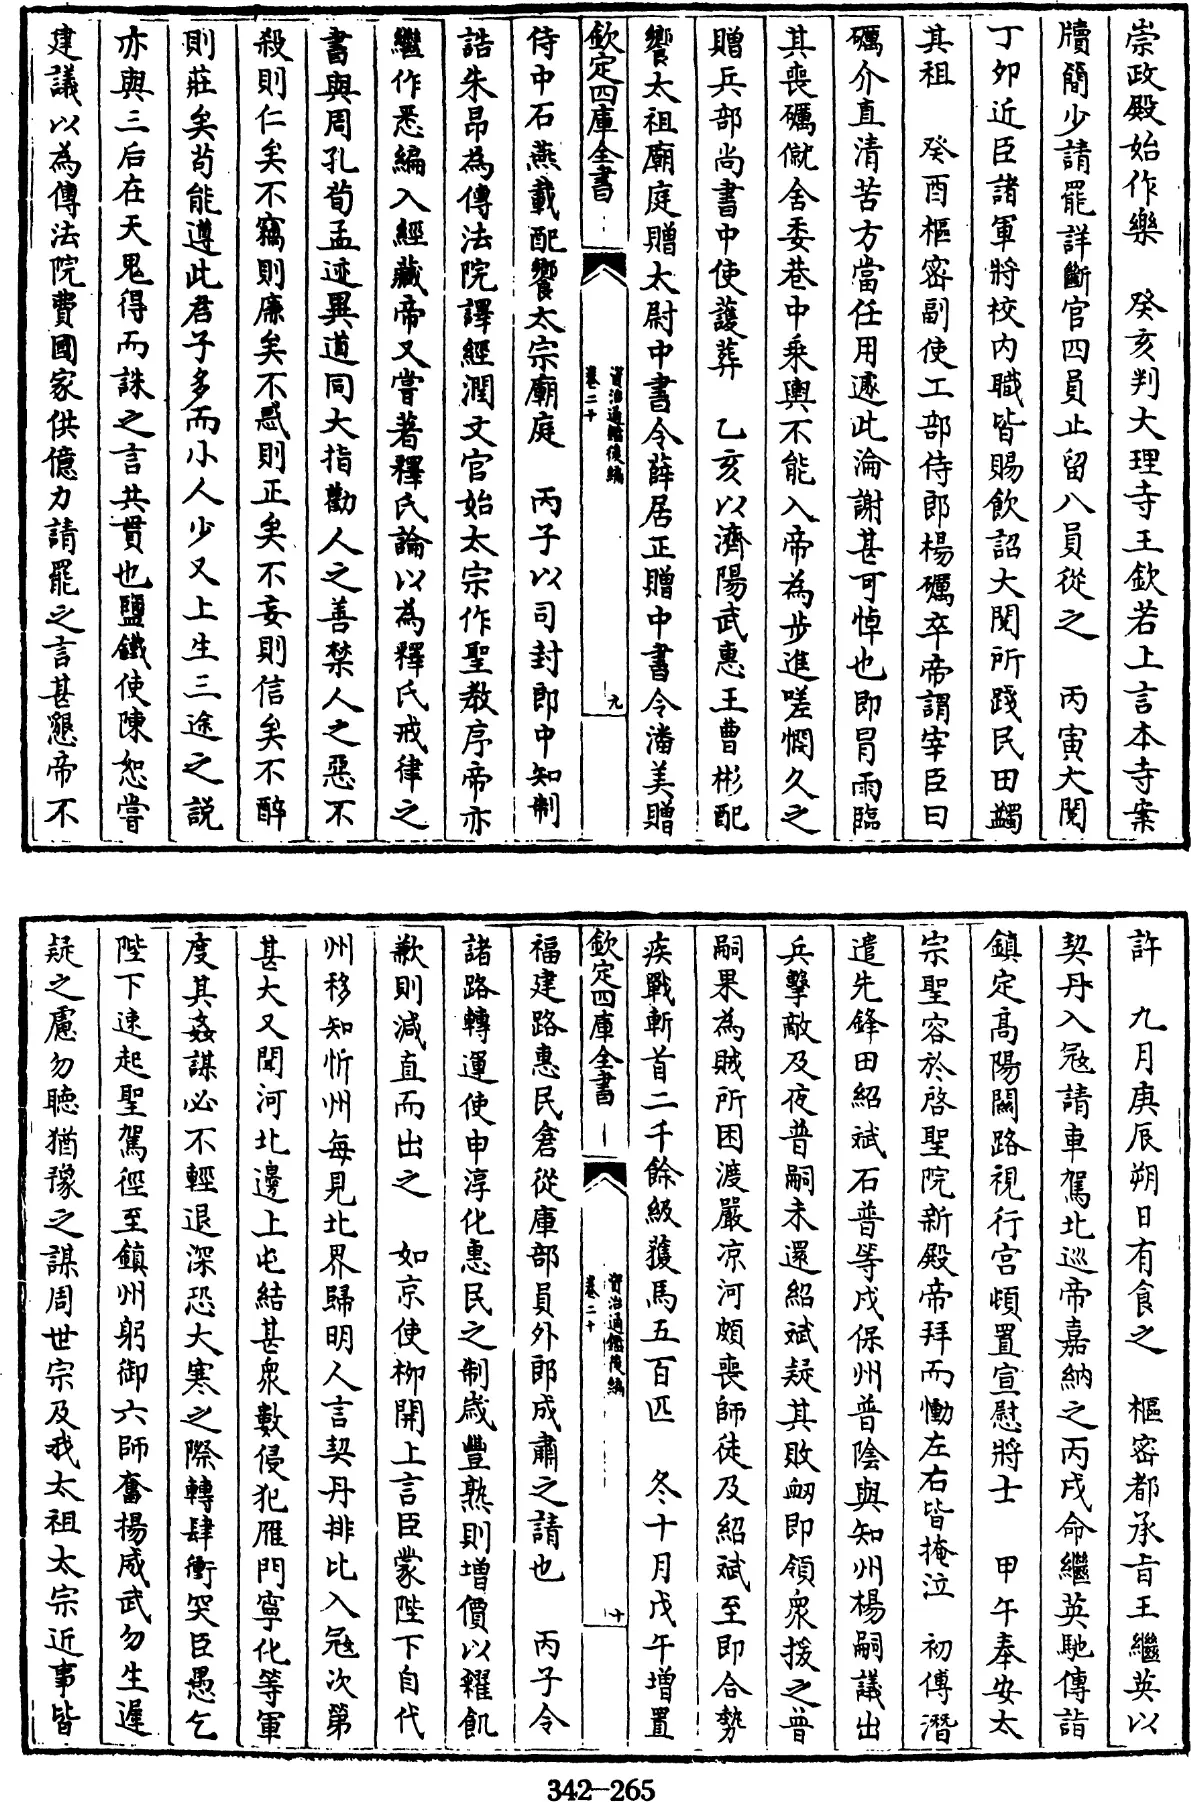 崇政殿始作樂　癸亥判大理寺王欽若上言本寺案
牘簡少請罷詳斷官四員止留八員從之　丙寅大閱
丁夘近臣諸軍將校内職皆賜飲詔大閱所踐民田蠲
其租　癸酉樞密副使工部侍郎楊礪卒帝謂宰臣曰
礪介直清苦方當任用遽此淪謝甚可悼也即冒雨臨
其喪礪僦舍委巷中乘輿不能入帝為步進嗟憫久之
贈兵部尚書中使護葬　乙亥以濟陽武惠王曹彬配
饗太祖廟庭贈太尉中書令薛居正贈中書令潘美贈
欽定四庫全書
資治通鑑後編
卷二十
九
侍中石熙載配饗太宗廟庭　丙子以司封郎中知制
誥朱昂為傳法院譯經潤文官始太宗作聖教序帝亦
繼作悉編入經藏帝又嘗著釋氏論以為釋氏戒律之
書與周孔荀孟迹異道同大指勸人之善禁人之惡不
殺則仁矣不竊則廉矣不惑則正矣不妄則信矣不醉
則莊矣茍能遵此君子多而小人少又上生三途之説
亦與三后在天鬼得而誅之言共貫也鹽鐵使陳恕嘗
建議以為傳法院費國家供億力請罷之言甚懇帝不
許　九月庚辰朔日有食之　樞密都承旨王繼英以
契丹入寇請車駕北巡帝嘉納之丙戌命繼英馳傳詣
鎮定高陽關路視行宫頓置宣慰將士　甲午奉安太
宗聖容於啓聖院新殿帝拜而慟左右皆掩泣　初傅潛
遣先鋒田紹斌石普等戍保州普陰與知州楊嗣議出
兵擊敵及夜普嗣未還紹斌疑其敗衂即領衆援之普
嗣果為賊所困渡嚴凉河頗喪師徒及紹斌至即合勢
疾戰斬首二千餘級獲馬五百匹　冬十月戊午增置
欽定四庫全書
資治通鑑後編
卷二十
十
福建路惠民倉從庫部員外郎成肅之請也　丙子令
諸路轉運使申淳化惠民之制歲豐熟則增價以糴飢
歉則減直而出之　如京使柳開上言臣蒙陛下自代
州移知忻州每見北界歸明人言契丹排比入寇次第
甚大又聞河北邊上屯結甚衆數侵犯雁門寧化等軍
度其姦謀必不輕退深恐大寒之際轉肆衝突臣愚乞
陛下速起聖駕徑至鎮州躬御六師奮揚威武勿生遲
疑之慮勿聽猶豫之謀周世宗及我太祖太宗近事皆
342-265